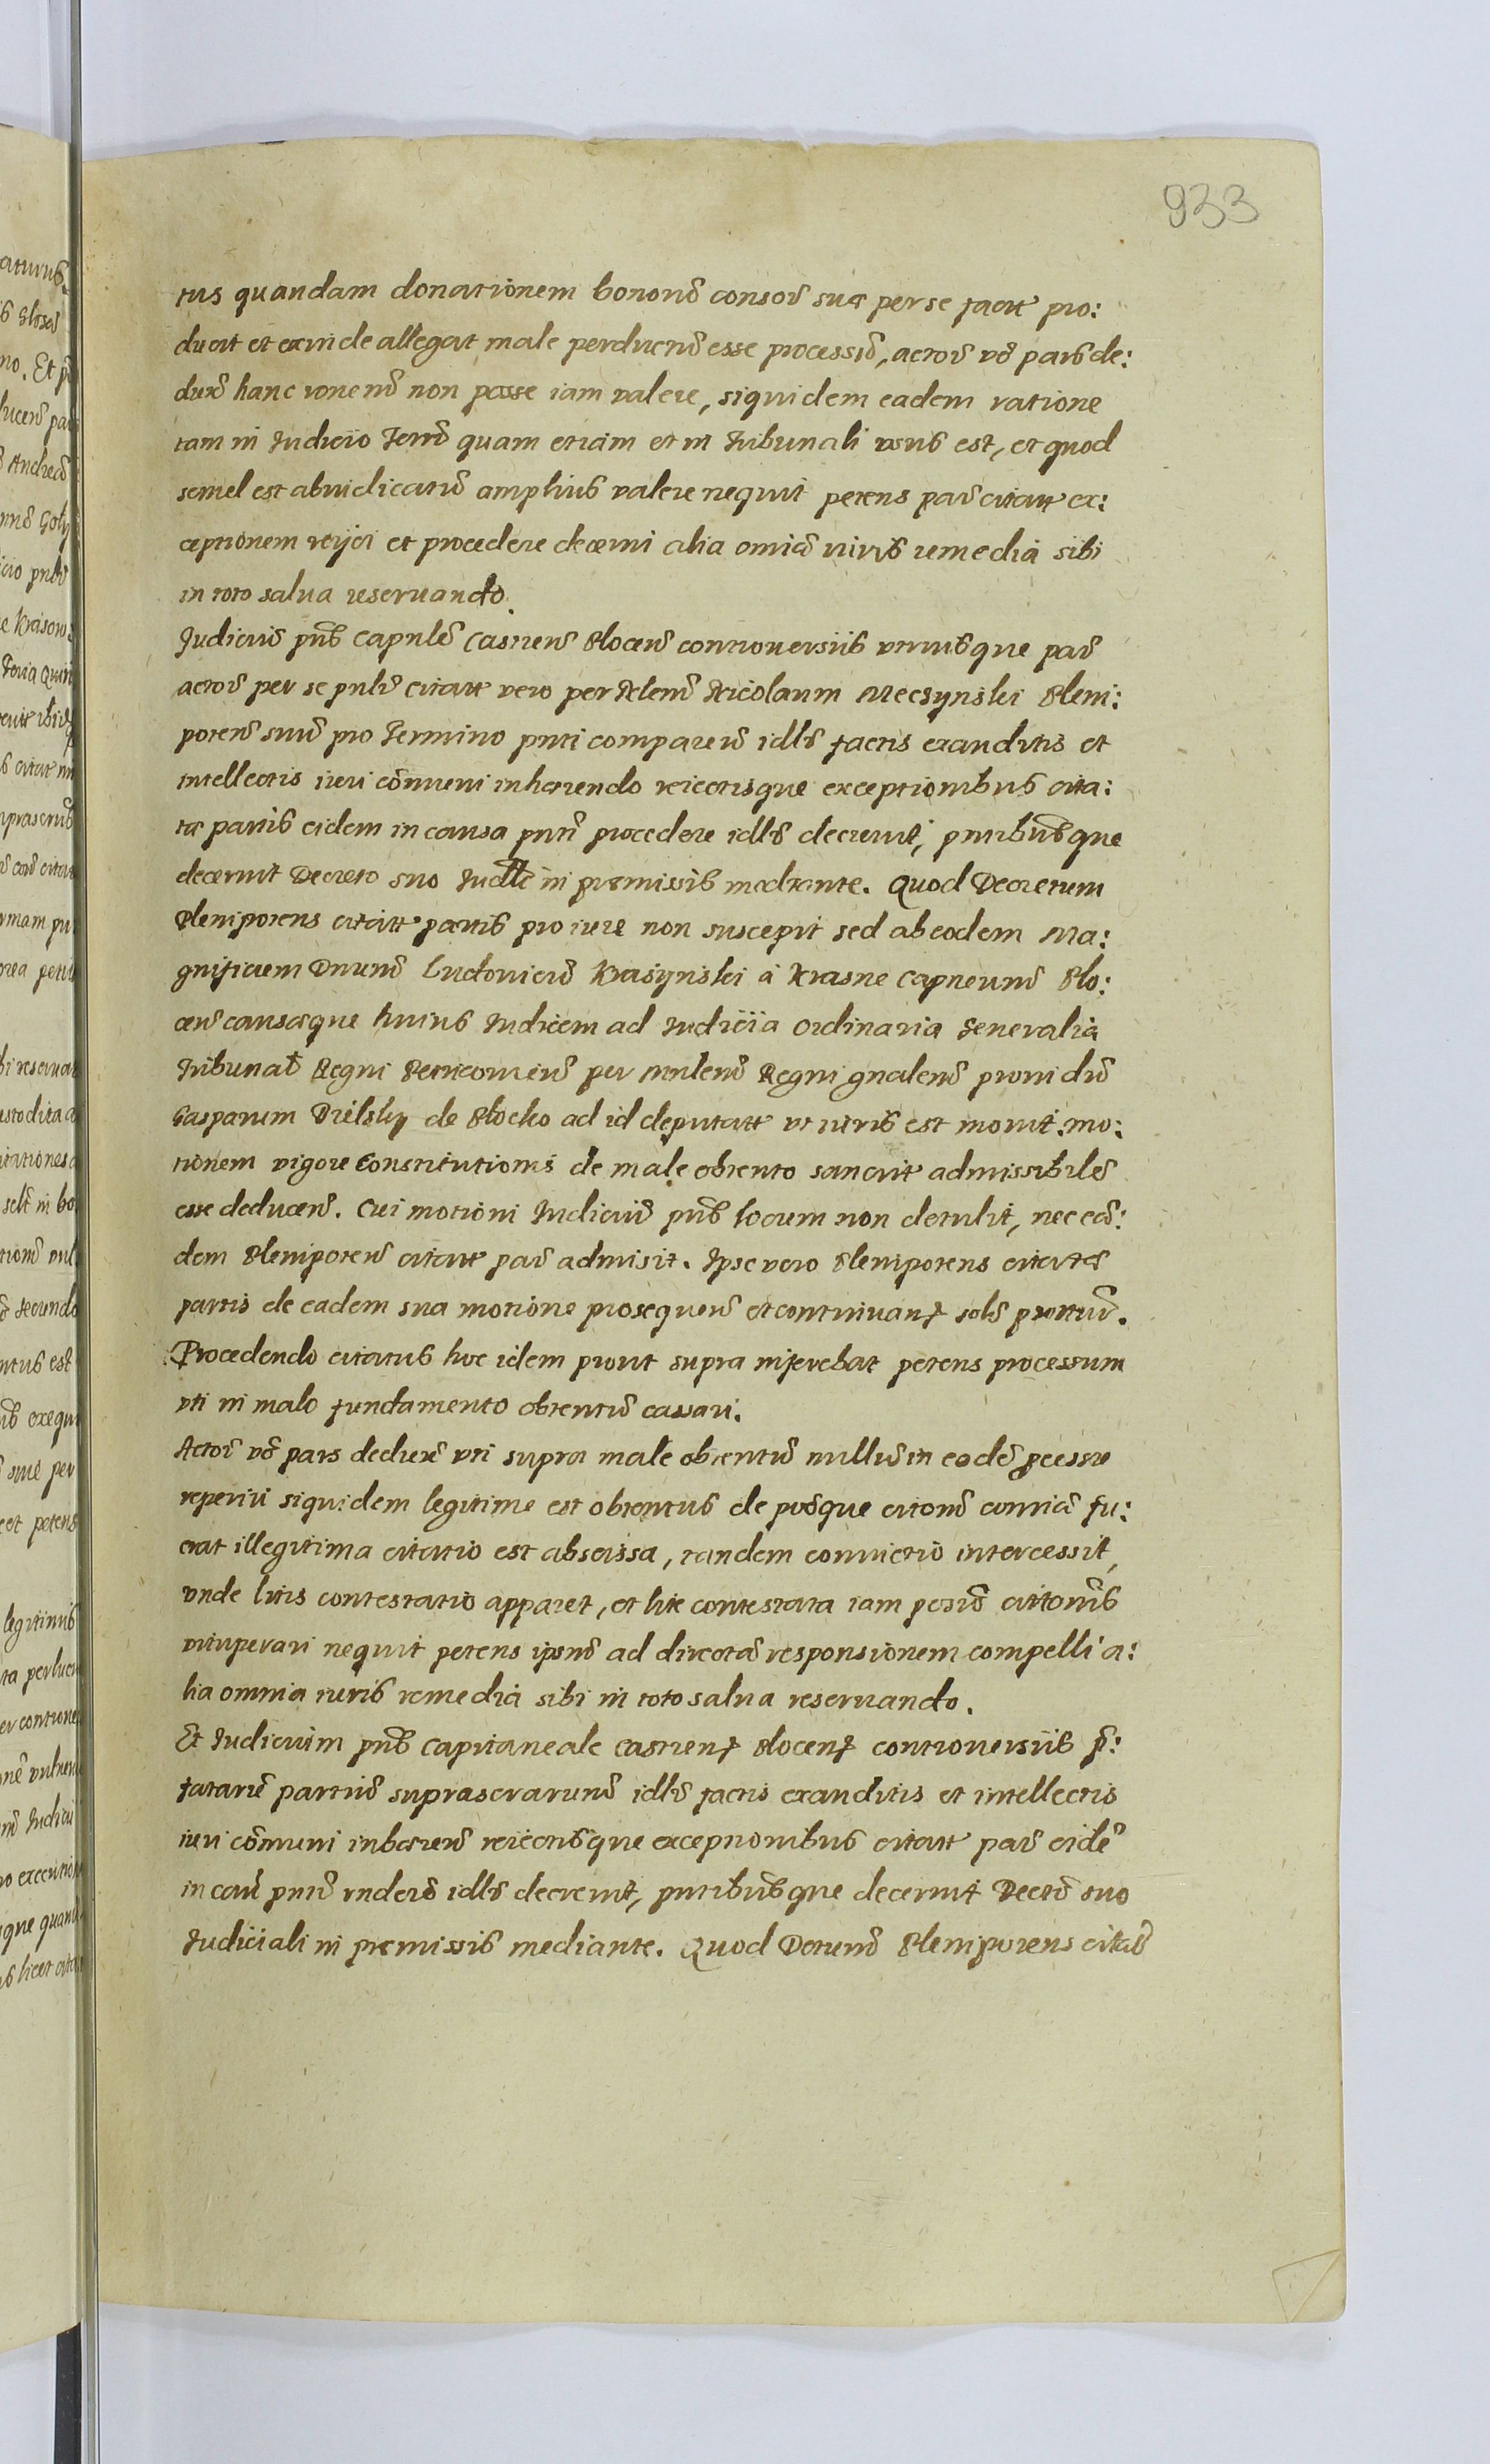 933
tus quandam donationem bonorũ consor̃ suæ per se factt pro:
ducit et exinde allegat male perductũ esse processũ, actor̃ võ pars de:
duxẽ hanc ronem̃ non posse iam valere, siquidem eadem ratione
tam in Iudicio Terrrõ quam etiam et in Tribunali vsus est, et quod
semel est abiudicatũ amplius valere nequit petens par̃ citatt ex:
ceptionem reijci et procedere decerni alia omiã iuris remedia sibi
in toto salua reseruando.
Iudiciũ pñs Capnlẽ Castren̄ Plocen̄ controuersiis vtriusque par̃
actor̃ per se pnlr̃ citatt vero per Nicolaum Mecsynski Pleni:
poten̄ suũ pro Termino pnti comparen̄ idlr̃ factis exauditis et
intellectis iuri cõmuni inhærendo reiectisque exceptionibus cita:
tæ partis eidem in causa pnti procedere idlr̃ decreuit, pntibusque
decernit Decreto suo Iudlĩ in præmissis mediante. Quod Decretum
Plenipotens citatt partis pro iure non suscepit sed ab eodem Ma:
gnificum Dnum̃ Ludouicũ Krasynski à Krasne Capneum̃ Plo:
cen̄ causæque huius Iudicem ad Iudicia Ordinaria Generalia
Tribunal̃ Regni Petricouien̄ per Regni gnalem̃ prouidũ
Gasparum Dzielsky de Plocko ad id deputatt vt iuris est mouit: mo:
tionem vigore Constitutionis de male obtento sancitt admissibilẽ
esse deducen̄. Cui motioni Iudiciũ pñs locum non detulit, nec eã:
dem Plenipoten̄ citatt par̃ admisit. Ipse vero Plenipotens citatæ
partis de eadem sua motione prosequen̄ et continuan̄
Procedendo citatus hoc idem prout supra inferebat petens processum
vti in malo fundamento obtentũ cassari.
Actor̃ võ pars deduxẽ vti supra male obtentũ nullũ in eodẽ
reperiri siquidem legitime est obtentus citonũ fu:
erat illegitima citatio est abscissa, tandem conuictio intercessit,
vnde litis contestatio apparet, et lite contestata iam citionis
vituperari nequit petens ipsum̃ ad directã responsionem compelli a:
lia omnia iuris remedia sibi in toto salua reseruando.
Et Iudicium pñs Capitaneale Castren̄ Plocen̄ controuersiis p̃:
fatarũ partiũ suprascrarum̃ idlr̃ factis exauditis et intellectis
iuri cõmuni inhæren̄ reiectisque exceptionibus citatt par̃ eidẽ
in cau pnti rnderẽ idlr̃ decreuit, pntibusque decernit Decrõ suo
Iudiciali in præmissis mediante. Quod Detum̃ Plenipotens citatæ